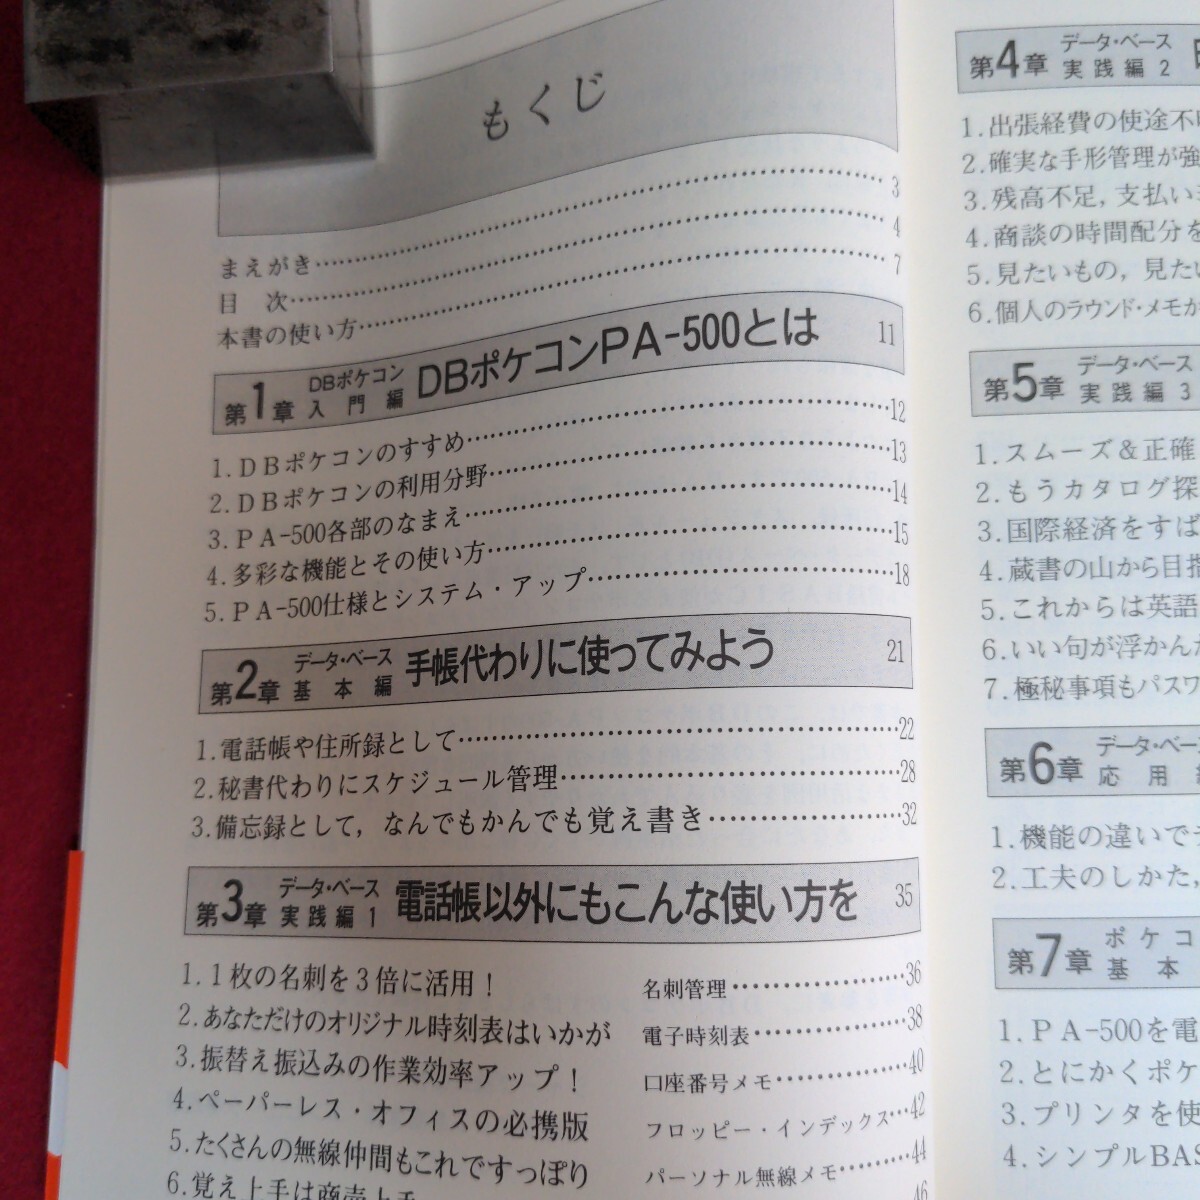 もくじ
まえがき……3
目 次……4
本書の使い方……7
第1章 DBポケコン入門編 DBポケコンPA-500とは 11
1.DBポケコンのすすめ……12
2.DBポケコンの利用分野……13
3.PA-500各部のなまえ……14
4.多彩な機能とその使い方……15
5.PA-500仕様とシステム・アップ……18
第2章 データ・ベース基本編 手帳代わりに使ってみよう 21
1.電話帳や住所録として……22
2.秘書代わりにスケジュール管理……28
3.備忘録として，なんでもかんでも覚え書き……32
第3章 データ・ベース実践編1 電話帳以外にもこんな使い方を 35
1.1枚の名刺を3倍に活用！ 名刺管理……36
2.あなただけのオリジナル時刻表はいかが 電子時刻表……38
3.振替え振込みの作業効率アップ！ 口座番号メモ……40
4.ペーパーレス・オフィスの必携版 フロッピー・インデックス…42
5.たくさんの無線仲間もこれですっぽり パーソナル無線メモ……44
6.覚え上手は商売上手 46
第4章 データ・ベース実践編2
1.出張経費の使途不
2.確実な手形管理が強
3.残高不足，支払い
4.商談の時間配分を
5.見たいもの，見たい
6.個人のラウンド・メモが
第5章 データ・ベース実践編3
1.スムーズ＆正確
2.もうカタログ探
3.国際経済をすば
4.蔵書の山から目指
5.これからは英語
6.いい句が浮かん
7.極秘事項もパスワ
第6章 データ・ベース応用
1.機能の違いで
2.工夫のしかた，
第7章 ポケコ基本
1.PA-500を電
2.とにかくポケ
3.プリンタを使
4.シンプルBAS